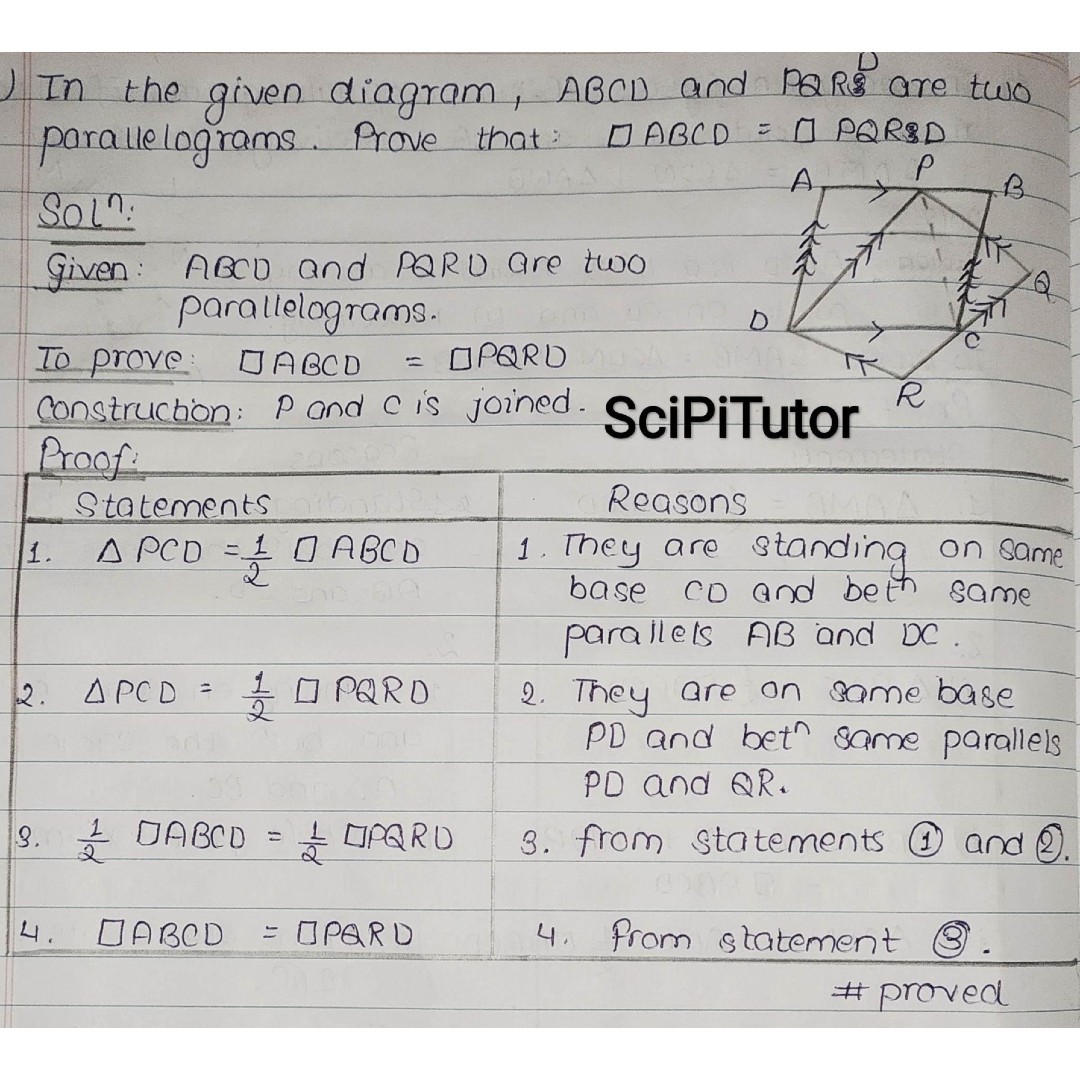 ) In the given diagram, ABCD and PQRD are two
parallelograms. Prove that: □ ABCD = □ PQRD
Solⁿ:
Given: ABCD and PQRD are two
parallelograms.
To prove: □ABCD = □PQRD
Construction: P and C is joined.
A P B
Q
D C
R
SciPiTutor
Proof:
Statements Reasons
1. △ PCD = 1/2 □ ABCD 1. They are standing on same
base CD and betⁿ same
parallels AB and DC.
2. △PCD = 1/2 □ PQRD 2. They are on same base
PD and betⁿ same parallels
PD and QR.
3. 1/2 □ABCD = 1/2 □PQRD 3. from statements ① and ②.
4. □ABCD = □PQRD 4. From statement ③.
# proved